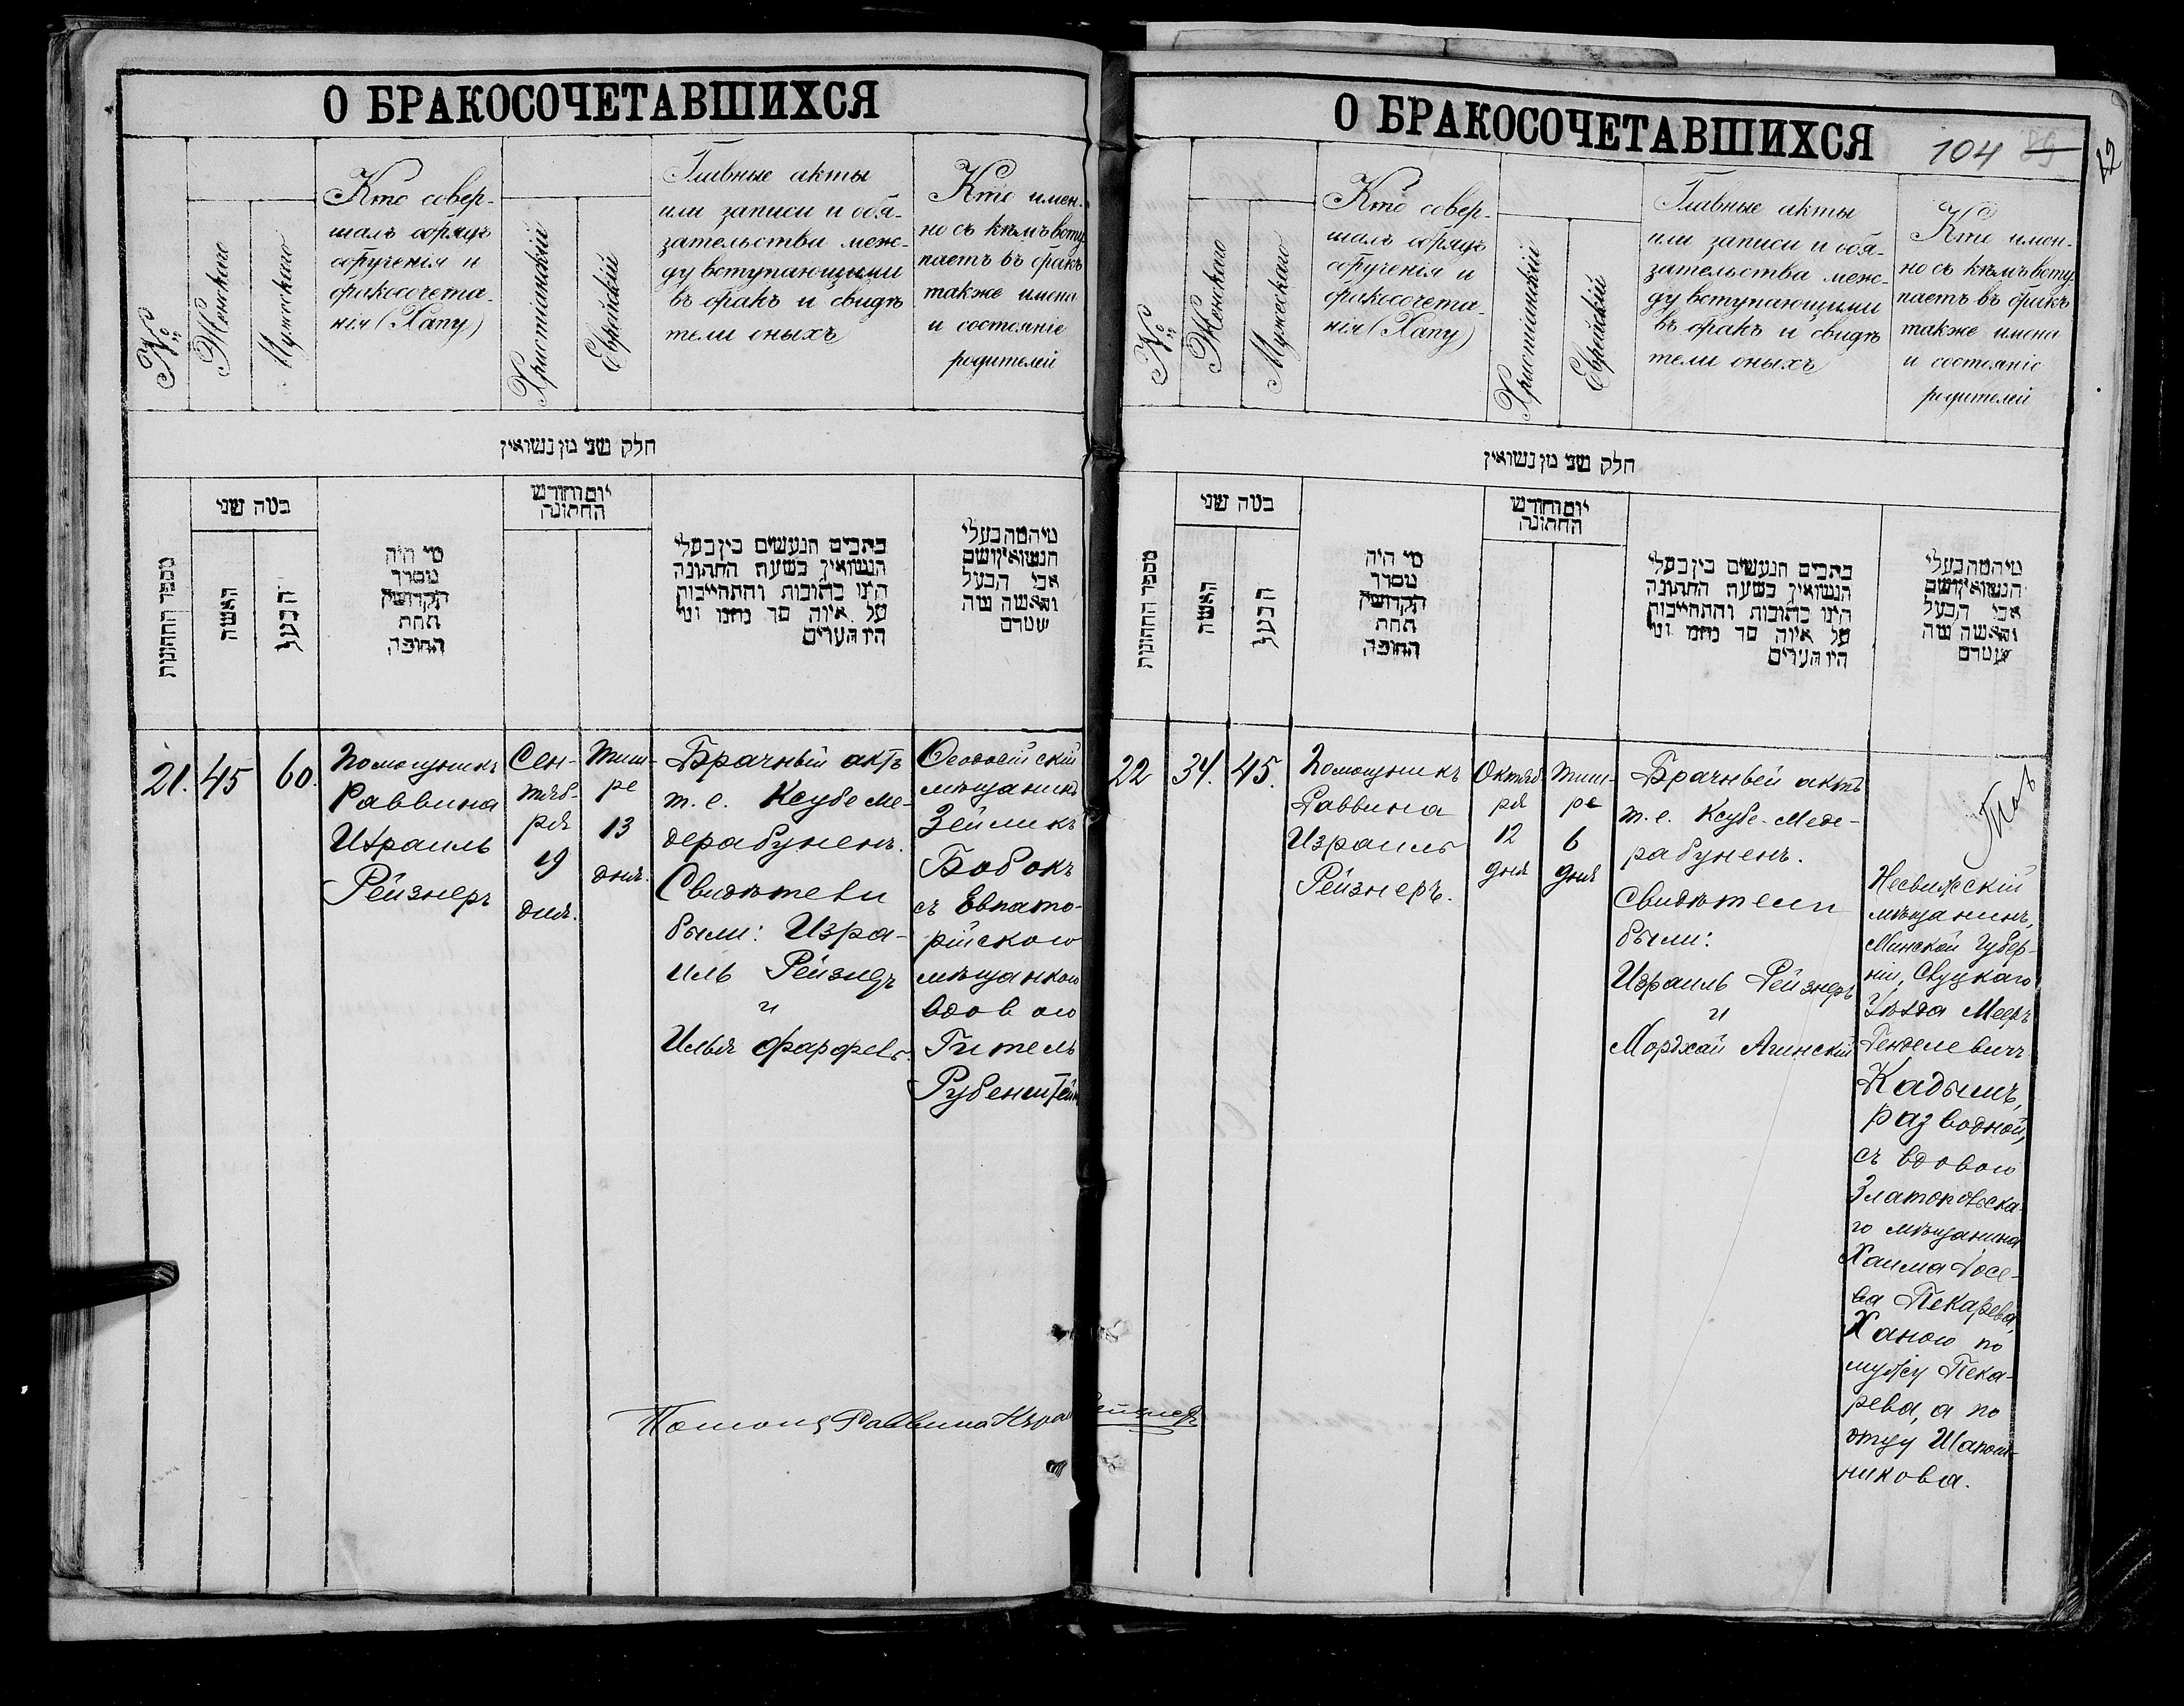 О БРАКОСОЧЕТАВШИХСЯ
№
Женскаго
Мужескаго
Кто совер-
шалъ обрядъ
обрученія и
бракосочета-
нія (Хапу)
Христіанскій
Еврейскій
Главные акты
или записи и обя-
зательства меж-
ду вступающими
въ бракъ и свидѣ
тели оныхъ
Кто имен-
но съ кѣмъ всту-
паетъ въ бракъ
также имена
и состояніе
родителей
חלק שני מן נשואין
מספר החתונות
כמה שני
האשה
הבעל
מי היה
מסדר
הקדושין
תחת
החופה
יום וחודש
החתונה
כתבים הנעשים בין בעלי
הנשואין בשעת החתונה
היינו כתובות והתחייבות
על איזה סך
היו העדים
מי המה בעלי
הנשואין ושם
אבי הבעל
והאשה
21.
45
60.
Помощникъ
Раввина
Израиль
Рейзнеръ
Сен-
тяб-
ря
19
дня.
Тиш-
ре
13
дня.
Брачный актъ
т. е. Ксубе ме-
дерабуненъ.
Свидѣтели
были: Изра-
иль Рейзнеръ
и
Илья Фарфель.
Ѳеодосійскій
мѣщанинъ
Зейликъ
Бобокъ
съ Евпато-
рійскою
мѣщанкою
вдовою
Гитель
Рубенштейнъ
Помощ Раввина Изра Рейзнеръ
О БРАКОСОЧЕТАВШИХСЯ
104
89
12
№
Женскаго
Мужескаго
Кто совер-
шалъ обрядъ
обрученія и
бракосочета-
нія (Хапу)
Христіанскій
Еврейскій
Главные акты
или записи и обя-
зательства меж-
ду вступающими
въ бракъ и свидѣ
тели оныхъ
Кто имен-
но съ кѣмъ всту-
паетъ въ бракъ
также имена
и состояніе
родителей
חלק שני מן נשואין
מספר החתונות
כמה שני
האשה
הבעל
מי היה
מסדר
הקדושין
תחת
החופה
יום וחודש
החתונה
כתבים הנעשים בין בעלי
הנשואין בשעת החתונה
היינו כתובות והתחייבות
על איזה סך
היו העדים
מי המה בעלי
הנשואין ושם
אבי הבעל
והאשה
22
34.
45.
Помощникъ
Раввина
Израиль
Рейзнеръ.
Октяб
ря
12
дня
Тиш-
ре
6
дня
Брачный актъ
т. е. Ксубе-меде-
рабуненъ.
Свидѣтели
были:
Израиль Рейзнеръ
и
Мордхай Агинскій
Несвижскій
мѣщанинъ,
Минской Губер-
ніи, Слуцкаго
Уѣзда Мееръ
Генделевичъ
Кадышъ,
разводной,
съ вдовою
Златопольска-
го мѣщанина
Хаима Іосе-
ва Пекарева,
Ханою по
мужу Пека-
рева, а по
отцу Шапош-
никова.